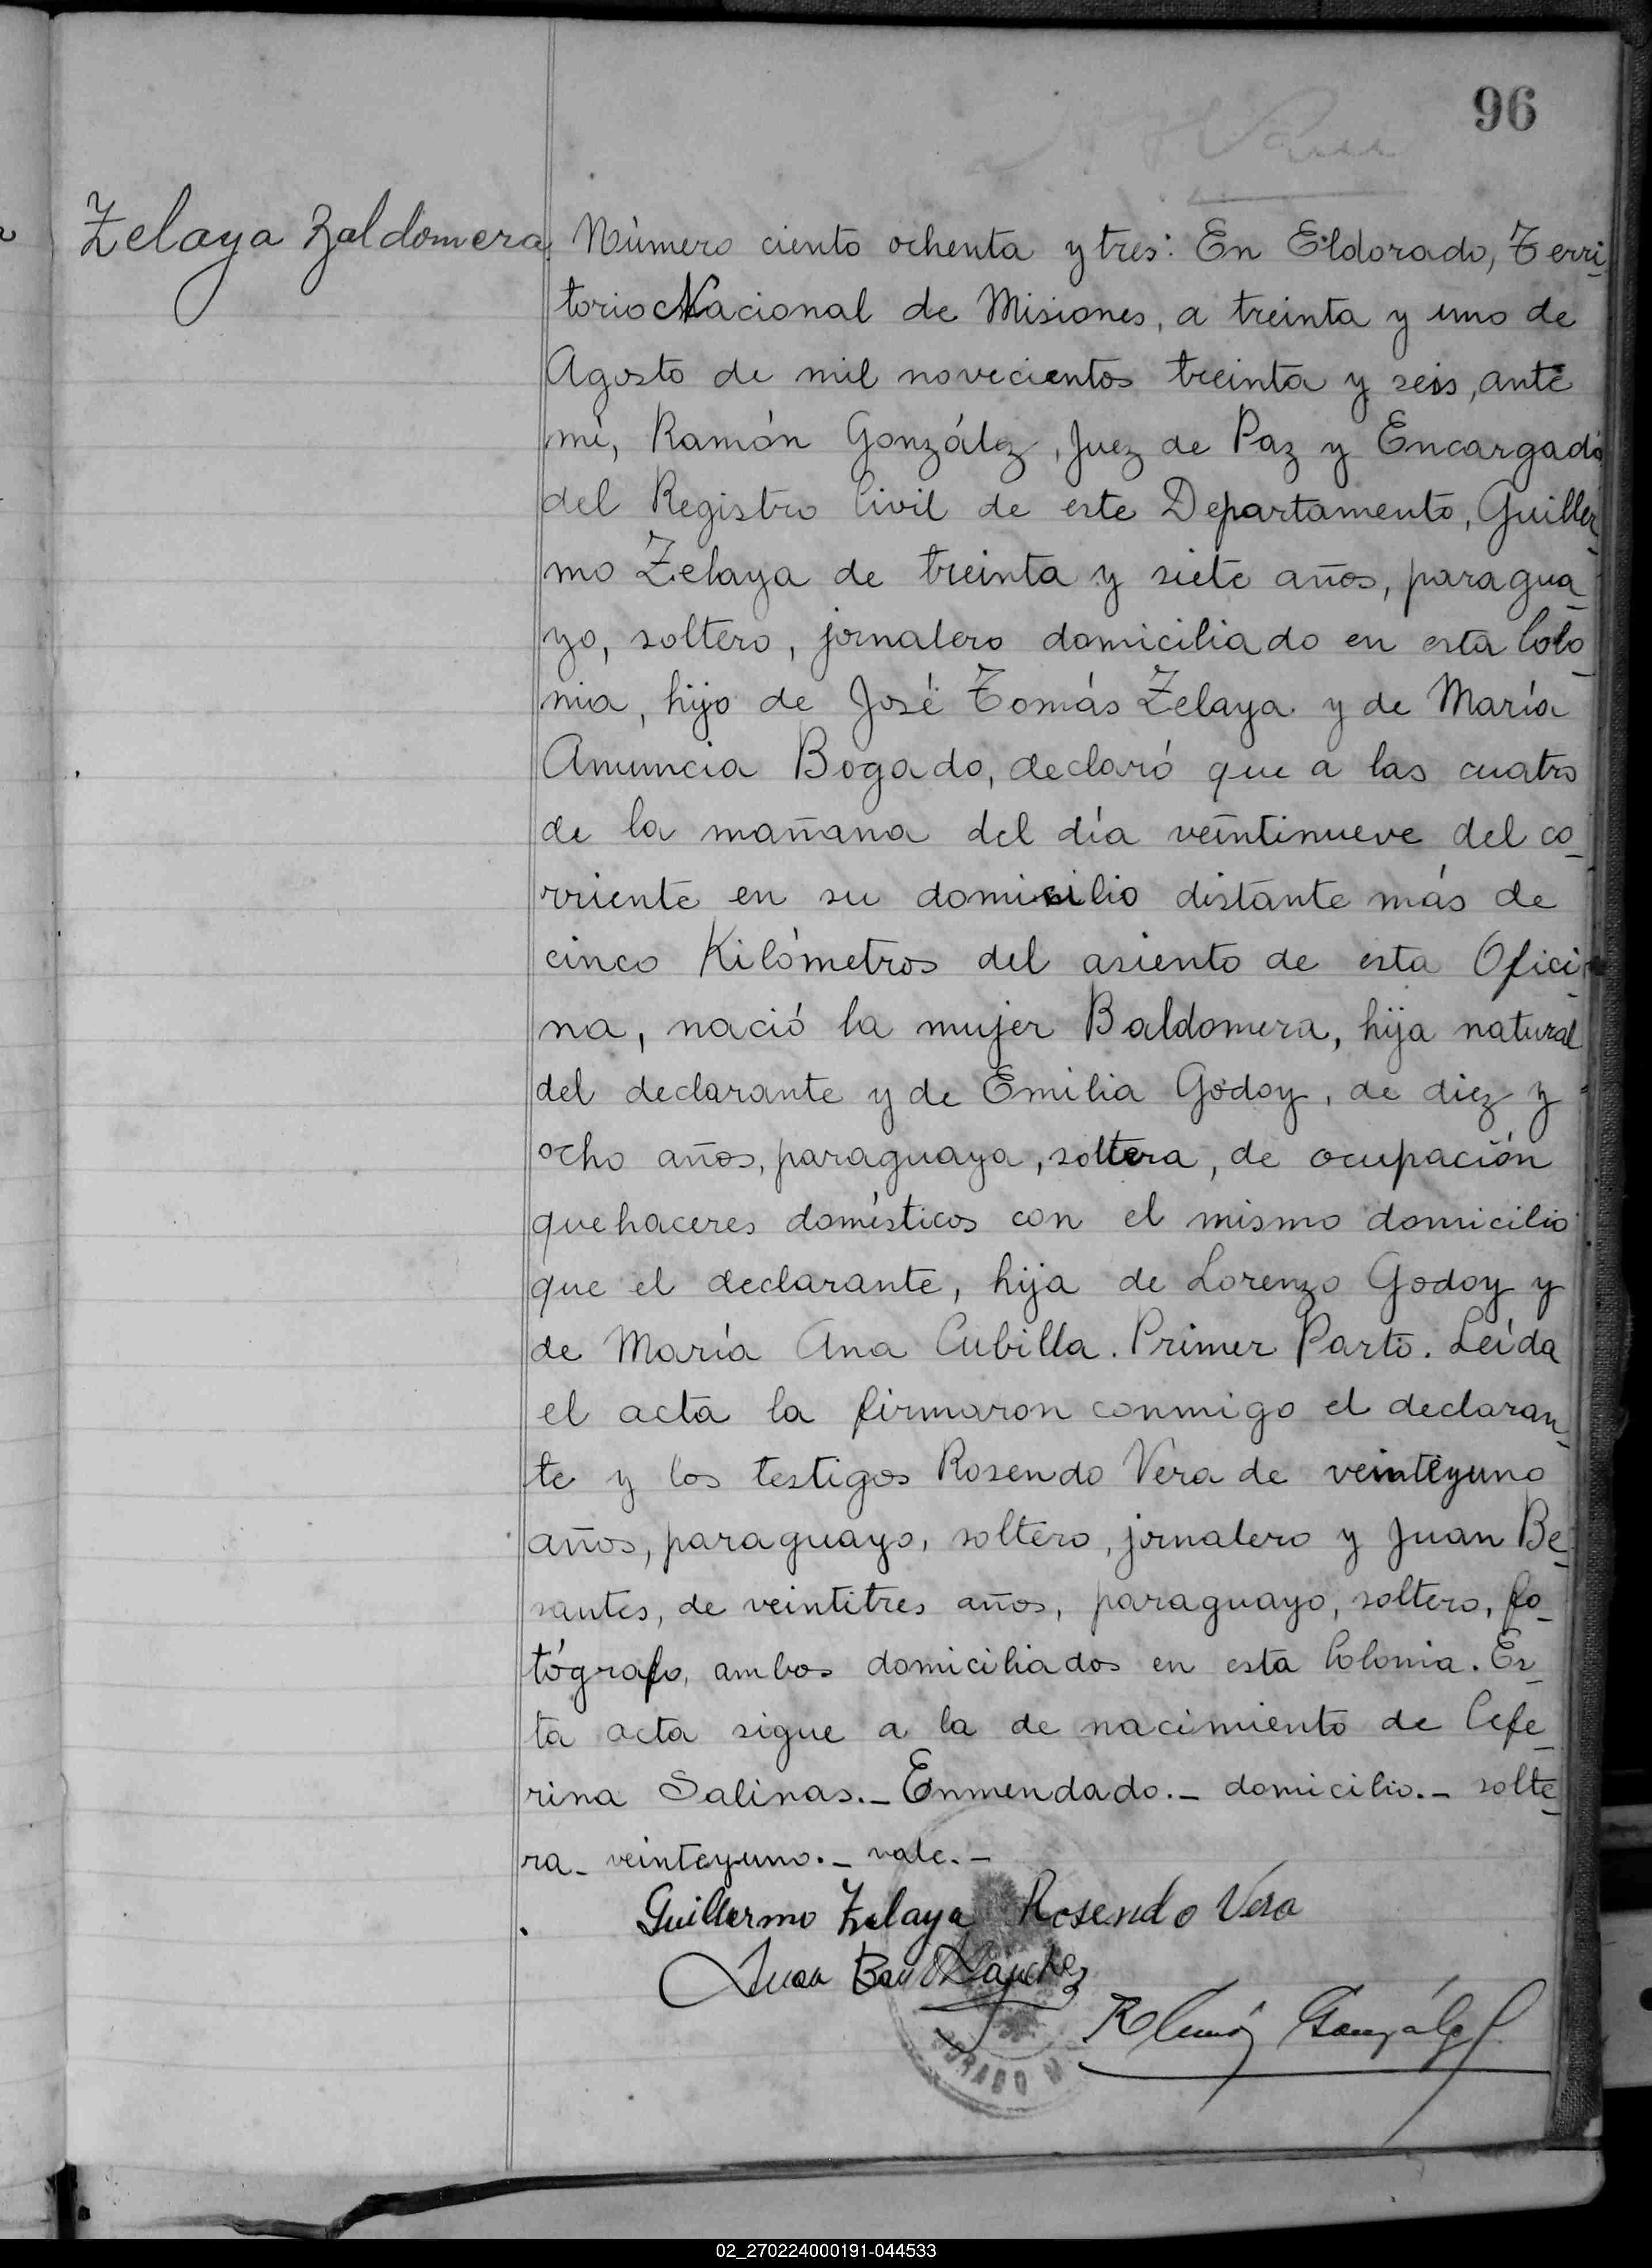 96
Zelaya Baldomera
Número ciento ochenta y tres: En Eldorado, Terri-
torio Nacional de Misiones, a treinta y uno de
Agosto de mil novecientos treinta y seis, ante
mí, Ramón González, Juez de Paz y Encargado
del Registro Civil de este Departamento, Guiller-
mo Zelaya de treinta y siete años, paragua-
yo, soltero, jornalero domiciliado en esta Colo-
nia, hijo de José Tomás Zelaya y de María
Anuncia Bogado, declaró que a las cuatro
de la mañana del día veintinueve del co-
rriente en su domicilio distante más de
cinco Kilómetros del asiento de esta Ofici-
na, nació la mujer Baldomera, hija natural
del declarante y de Emilia Godoy, de diez y
ocho años, paraguaya, soltera, de ocupación
quehaceres domésticos con el mismo domicilio
que el declarante, hija de Lorenzo Godoy y
de María Ana Cubilla. Primer Parto. Leída
el acta la firmaron conmigo el declaran-
te y los testigos Rosendo Vera de veinteyuno
años, paraguayo, soltero, jornalero y Juan Be-
santes, de veintitres años, paraguayo, soltero, fo-
tógrafo, ambos domiciliados en esta Colonia. Es-
ta acta sigue a la de nacimiento de Cefe-
rina Salinas.- Enmendado.- domicilio.- solte-
ra- veinteyuno.- vale.-
Guillermo Zelaya Rosendo Vera
Juan
Ramón González
02_270224000191-044533